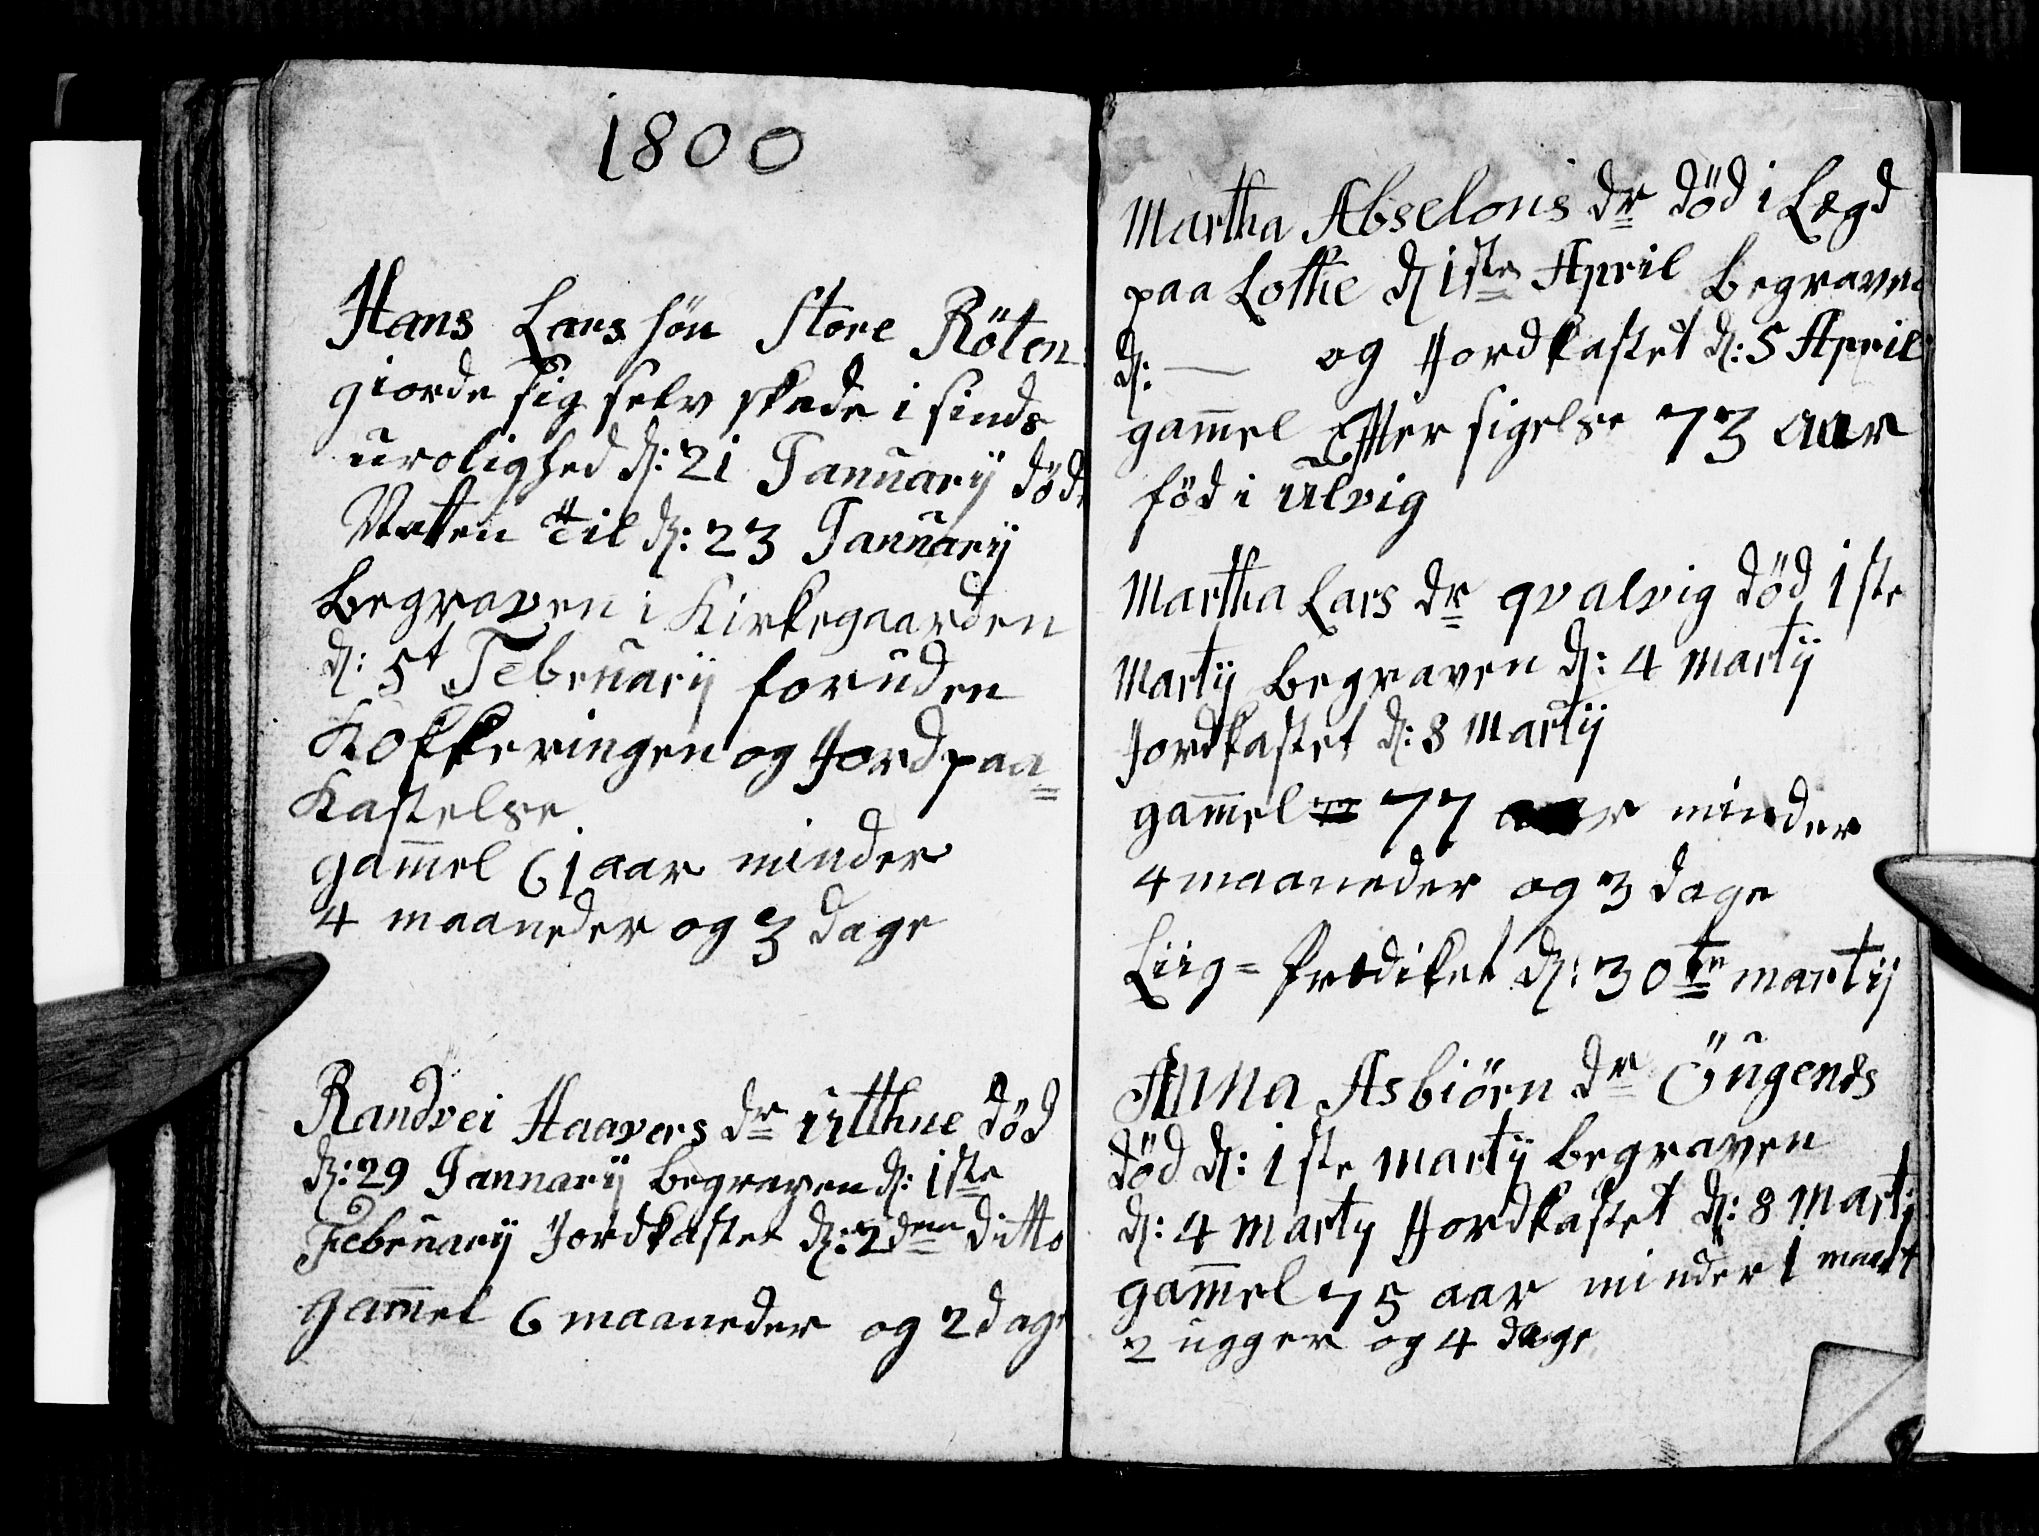 1800
Hans Lars søn Store Röten
giorde sig selv skade i sinds
urolighed d: 21 Januarÿ död
Natten til d: 23 Januarÿ
Begraven i Kirkegaarden
d: 5t Februarÿ foruden
Klokkeringen og Jord paa=
Kastelse
gam̄el 61 aar minder
4 maaneder og 3 dage
Randvei Haavers dr Utthne död
d: 29 Januarÿ Begraven d: 1ste
Februarÿ Jordkastet d: 2den ditto
gam̄el 6 maaneder og 2 dage
Martha Abselons dr död i Lægd
paa Lothe d 1ste April Begraven
d: — og Jordkastet d: 5 April
gam̄el Efter sigelse 73 aar
föd i Ulvig
Martha Lars dr qvalvig död 1ste
Martÿ Begraven d: 4 Martÿ
Jordkastet d: 8 Martÿ
gam̄el 77 aar minder
4 maaneder og 3 dage
Liig= Prediket d: 30te martÿ
Anna Asbiörn dr Öugends
död d: 1ste Martÿ begraven
d: 4 Martÿ Jordkastet d: 8 Martÿ
gam̄el 75 aar minder 1 maat
2 ugger og 4 dage